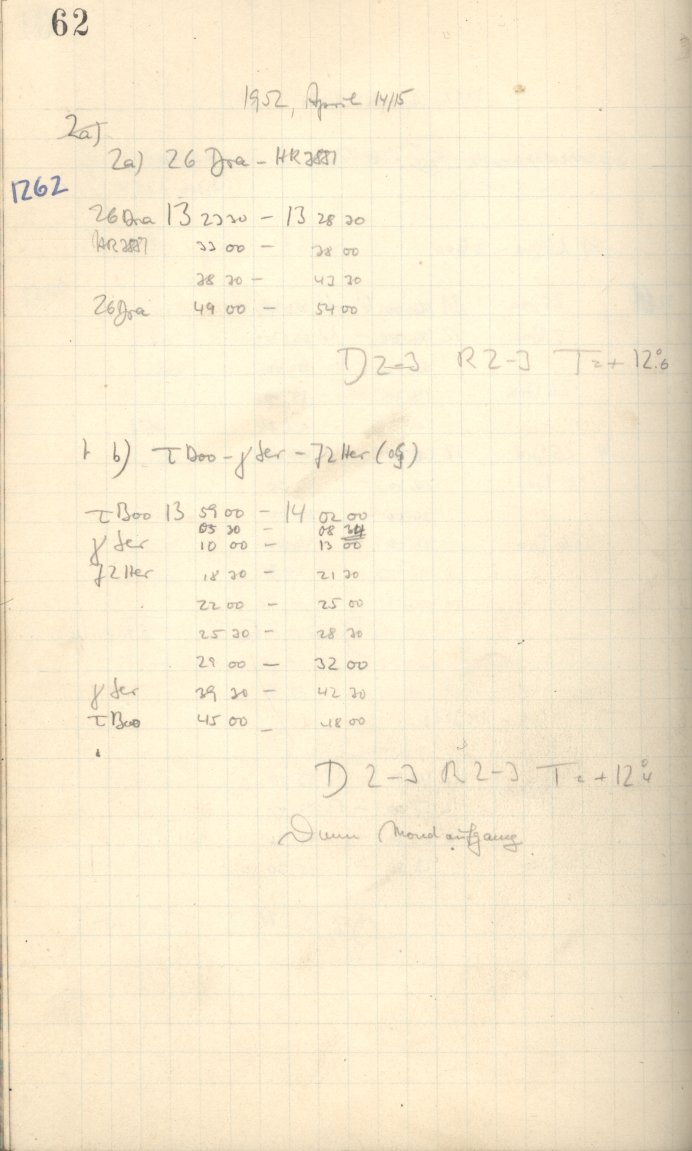 62
1952, April 14/15
2a)
2a) 26 Dra - HR 7851
1262
26 Dra 13 23 30 - 13 28 30
33 00 - 38 00
38 30 - 43 30
26 Dra 49 00 - 54 00
D 2-3 R 2-3 T = + 12°.6
b) τ Boo - γ Ser - 72 Her
τ Boo 13 59 00 - 14 02 00
05 30 - 08 30
γ Ser 10 00 - 13 00
72 Her 18 30 - 21 30
22 00 - 25 00
25 30 - 28 30
29 00 - 32 00
γ Ser 39 30 - 42 30
τ Boo 45 00 - 48 00
D 2-3 R 2-3 T = + 12°.4
Mondaufgang